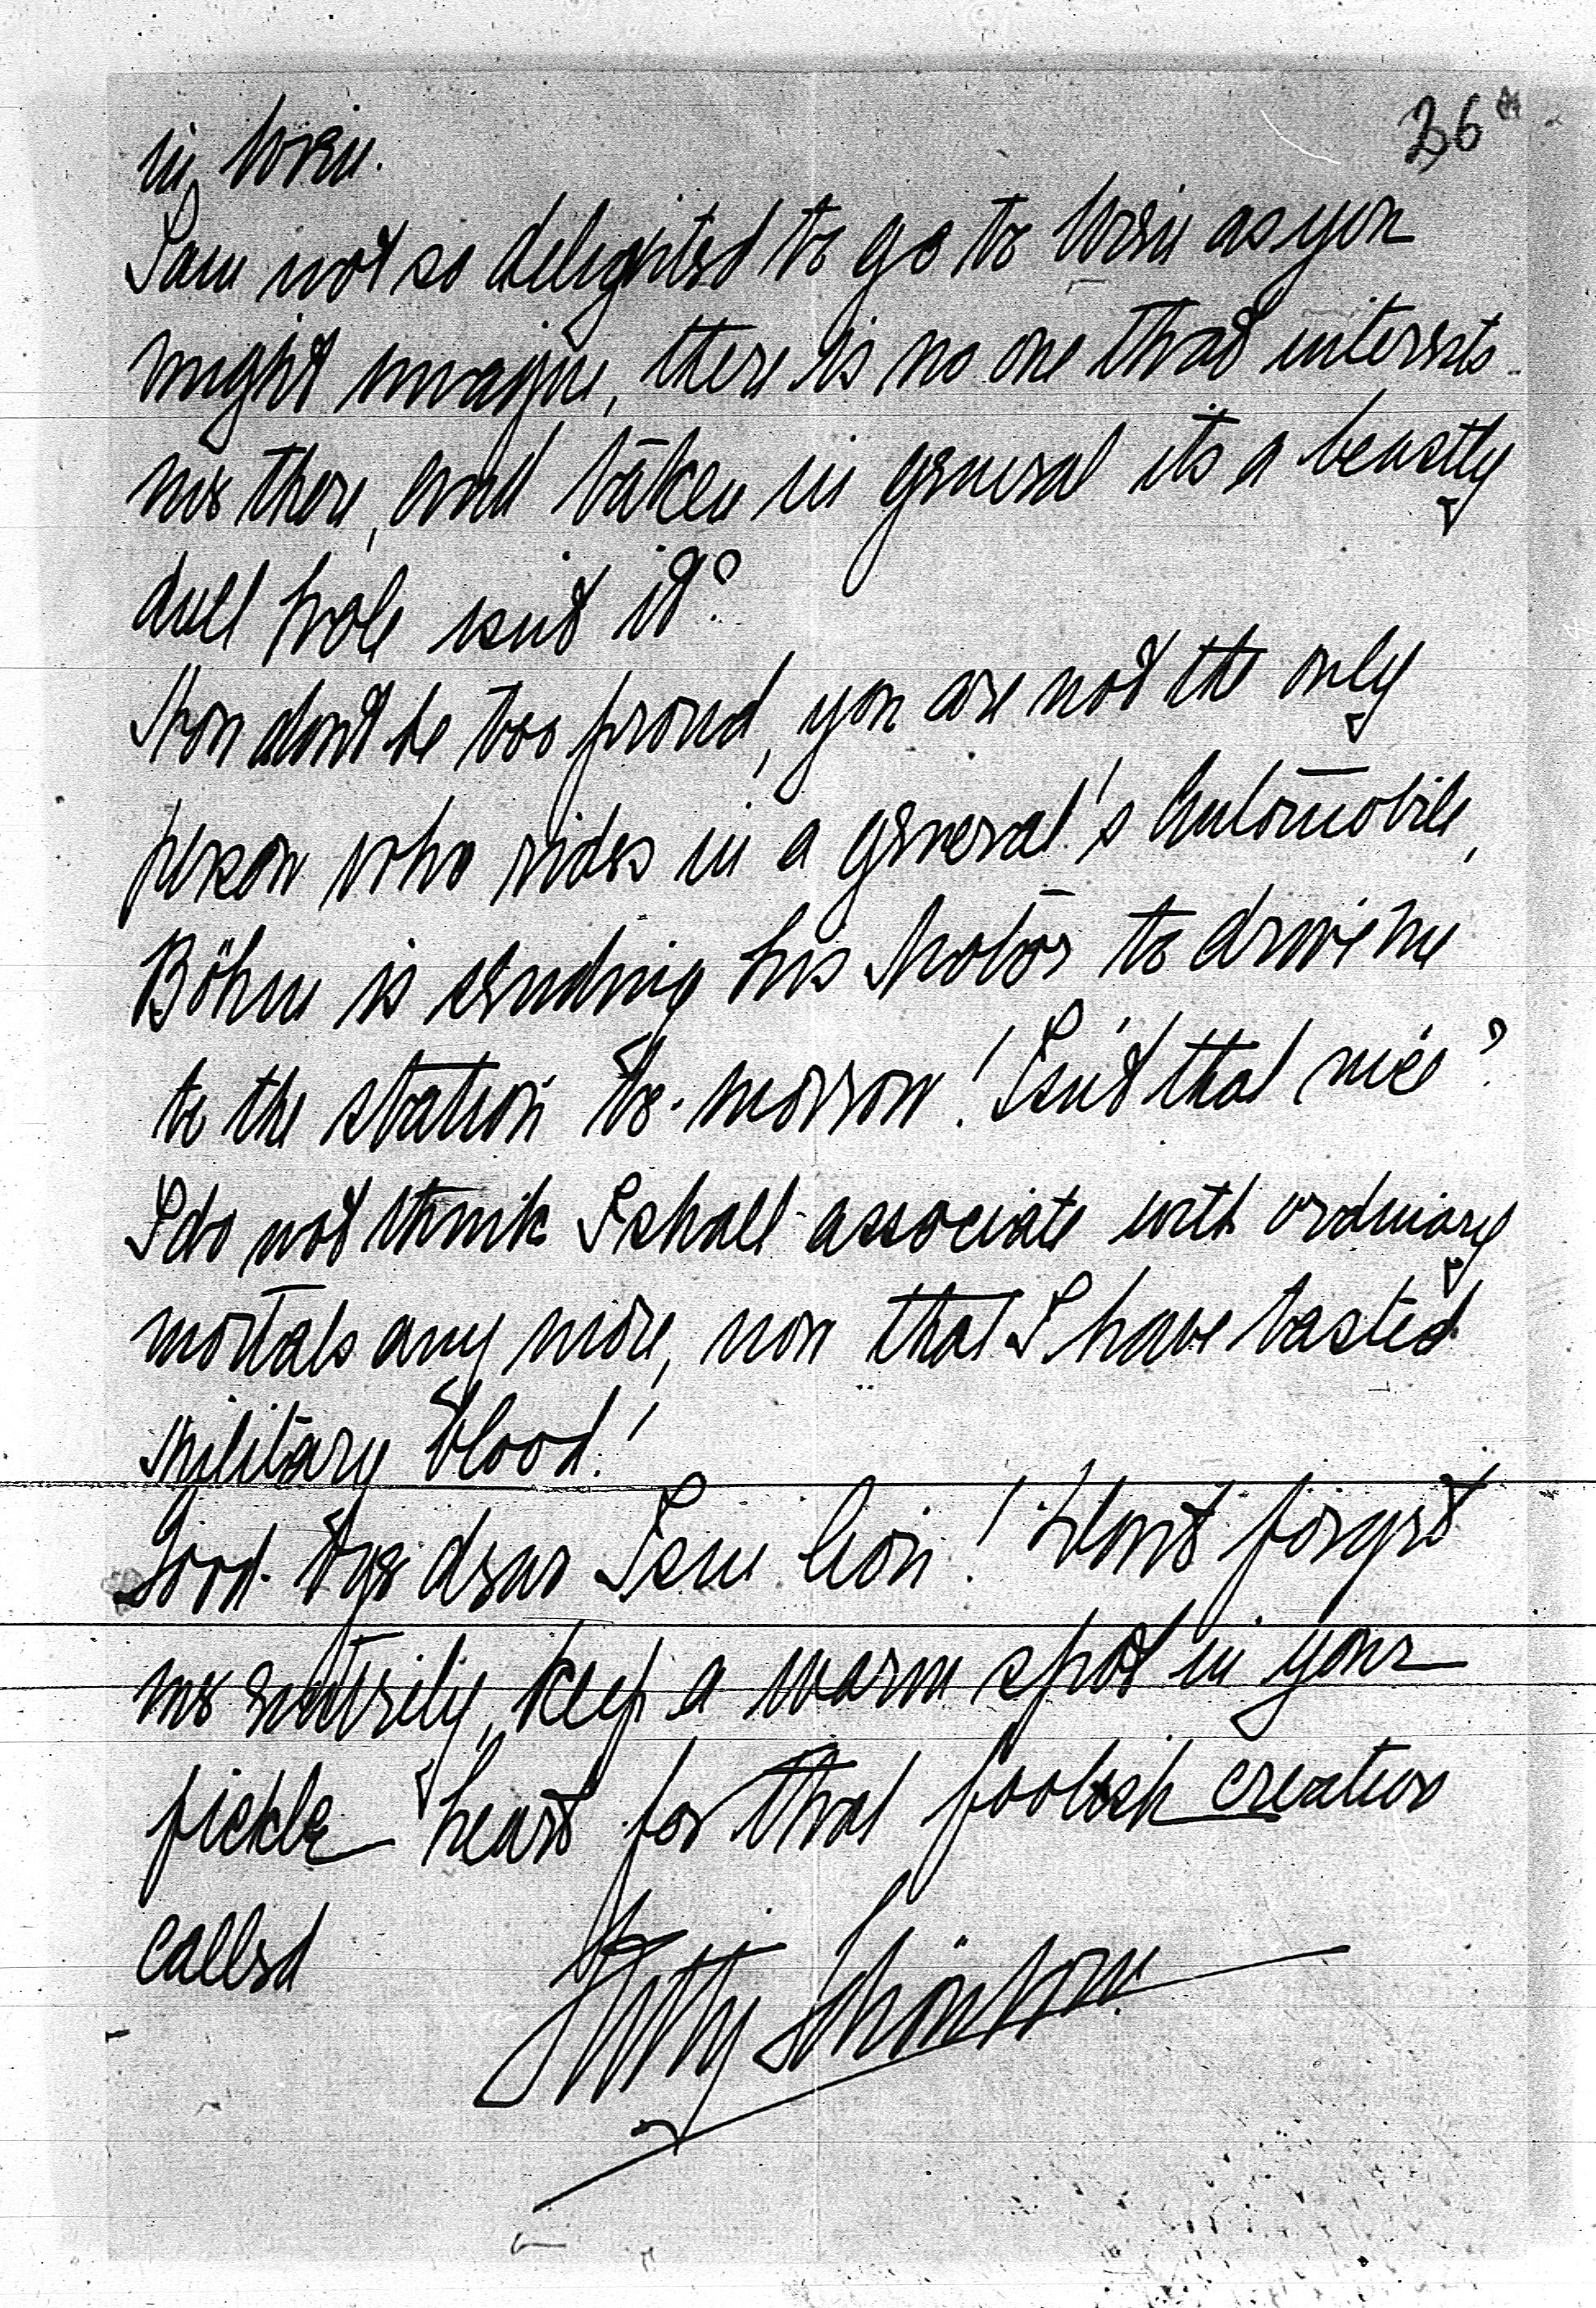 36
in Wien.
I am not so delighted to go to Wien as you
might imagine, there is no one that interests
me there, and taken in general its a beastly
dull hole isnt it?
Now dont be too proud, you are not the only
person who rides in a general's Automobile,
Böhm is sending his Motor to drive me
to the station to-morrow! Isn't that nice?
I do not think I shall associate with ordinary
mortals any more, now that I have tasted
Military blood!
Good-bye dear! Dont forget
me entirely, keep a warm spot in your
fickle heart for that foolish creation
called